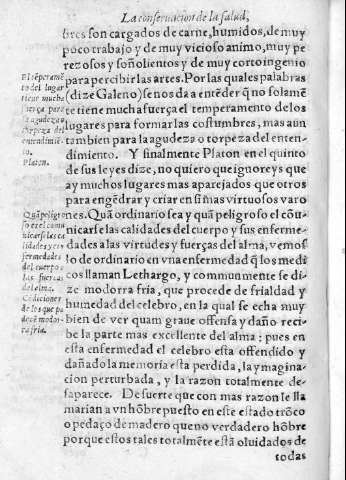 La conseruacion de la salud,
bres son cargados de carne, humidos, de muy
poco trabajo y de muy vicioso animo, muy pe
rezosos y soñolientos y de muy corto ingenio
para percibir las artes. Por las quales palabras
(dize Galeno) se nos da a entēder q̄ no solamē
te tiene mucha fuerça el temperamento de los
lugares para formar las costumbres, mas aun
tambien para la agudeza o torpeza del enten-
dimiento. Y finalmente Platon en el quinto
de sus leyes dize, no quiero que ignoreys que
ay muchos lugares mas aparejados que otros
para engēdrar y criar en si mas virtuosos varo
nes. Quā ordinario sea y quā peligroso el cōmu
nicarse las calidades del cuerpo y sus enferme-
dades a las virtudes y fuerças del alma, vemos
lo de ordinario en vna enfermedad q̄ los medi
cos llaman Lethargo, y communmente se di-
ze modorra fria, que procede de frialdad y
humedad del celebro, en la qual se echa muy
bien de ver quam graue offensa y daño reci-
be la parte mas excellente del alma: pues en
esta enfermedad el celebro esta offendido y
dañado la memoria esta perdida, la ymagina-
cion perturbada, y la razon totalmente de-
saparece. De suerte que con mas razon le lla
marian a vn hōbre puesto en este estado trōco
o pedaço de madero que no verdadero hōbre
porque estos tales totalmēte estā oluidados de
todas
El tēperamē
to del lugar
tiene mucha
fuerça para
la agudeza o
torpeza del
entendimiē-
to.
Platon.
Quā peligro
so es el comu
nicarse las ca
lidades y en
fermedades
del cuerpo a
las fuerças
del alma.
Cōdiciones
de los que pa
decē modor-
ra fria.